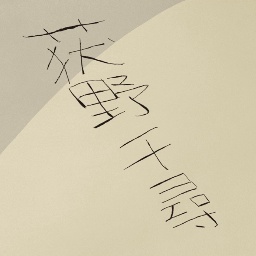 荻野千尋